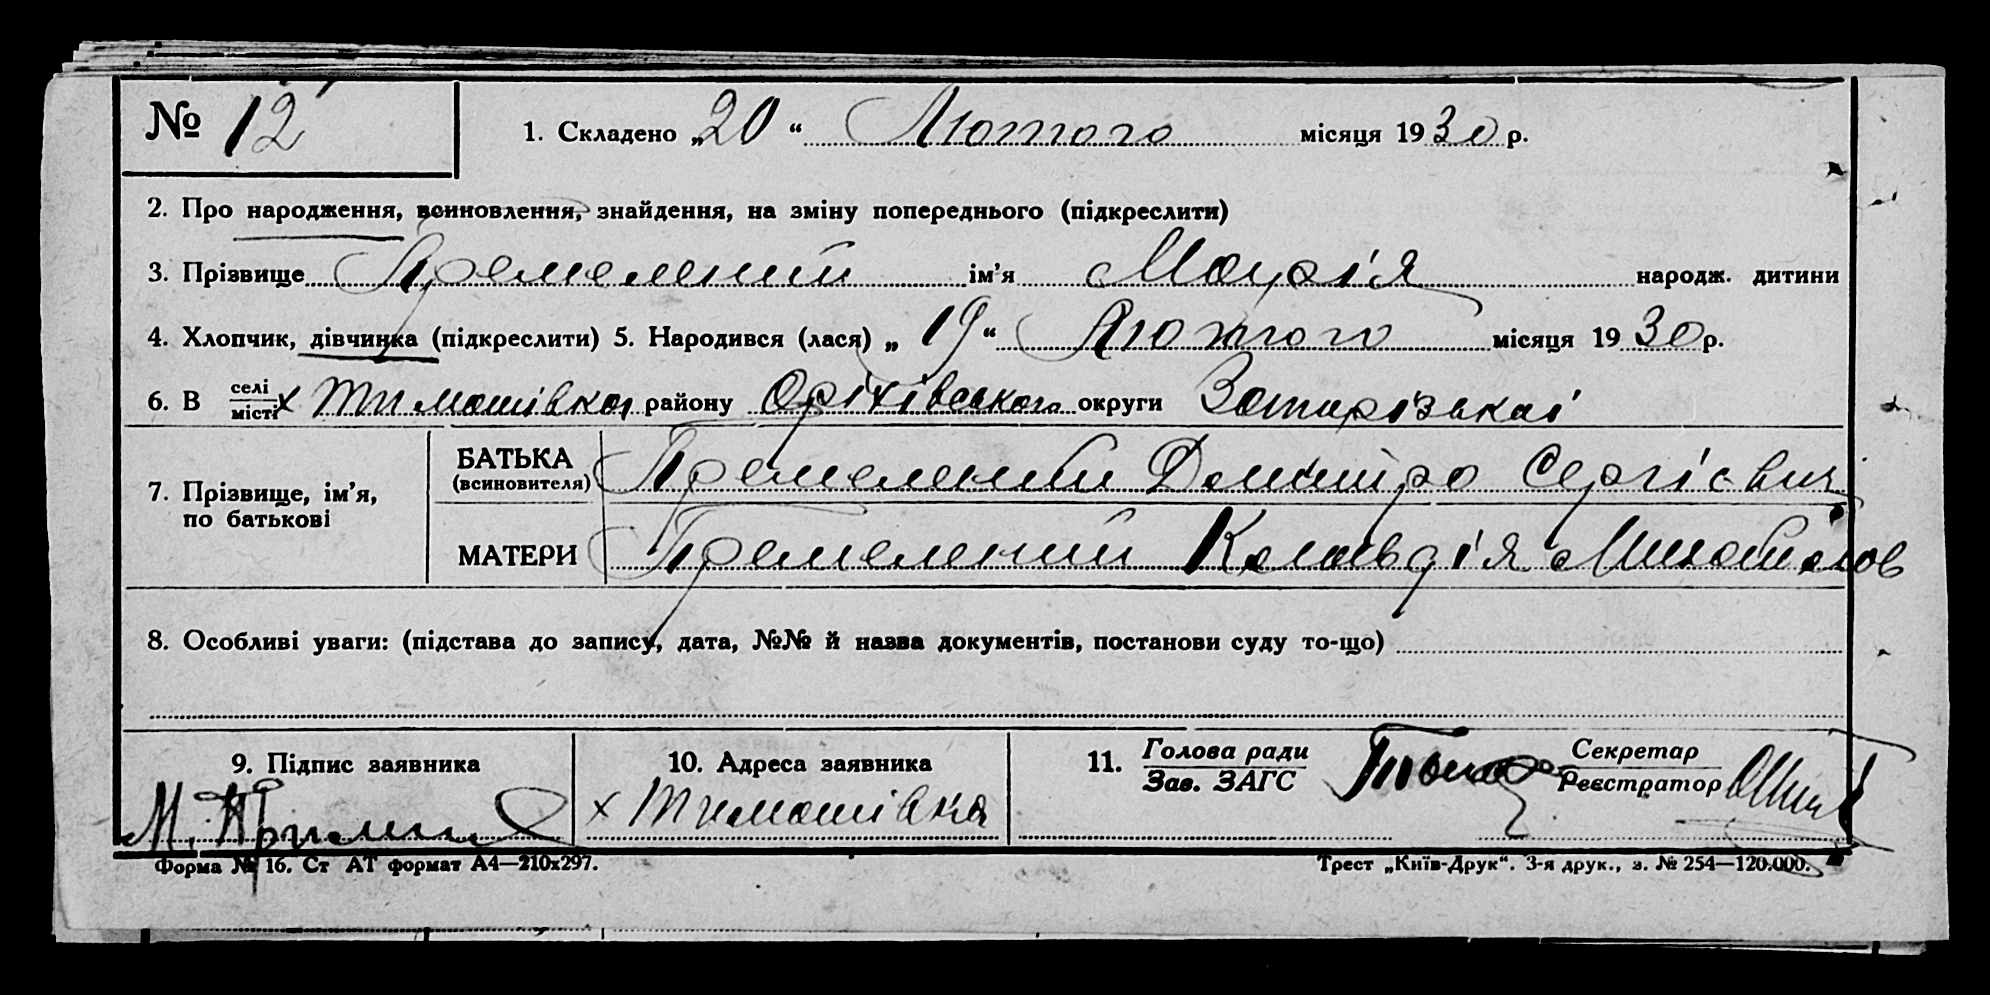 № 12 1. Складено „20“ Лютого місяця 1930 р.
2. Про народження, всиновлення, знайдення, на зміну попереднього (підкреслити)
3. Прізвище ім’я Марія народж. дитини
4. Хлопчик, дівчинка (підкреслити) 5. Народився (лася) „19“ Лютого місяця 1930 р.
6. В селі місті х Тимошівка району Оріхівського округи Запорізької
7. Прізвище, ім’я, по батькові
БАТЬКА (всиновителя) Дмитро Сергієвич
МАТЕРИ Клавдія
8. Особливі уваги: (підстава до запису, дата, №№ й назва документів, постанови суду то-що)
9. Підпис заявника 10. Адреса заявника 11. Голова ради Зав. ЗАГС Секретар Реєстратор
х Тимошівка
Форма № 16. Ст АТ формат А4—210х297. Трест „Київ-Друк“. 3-я друк., з. № 254—120.000.